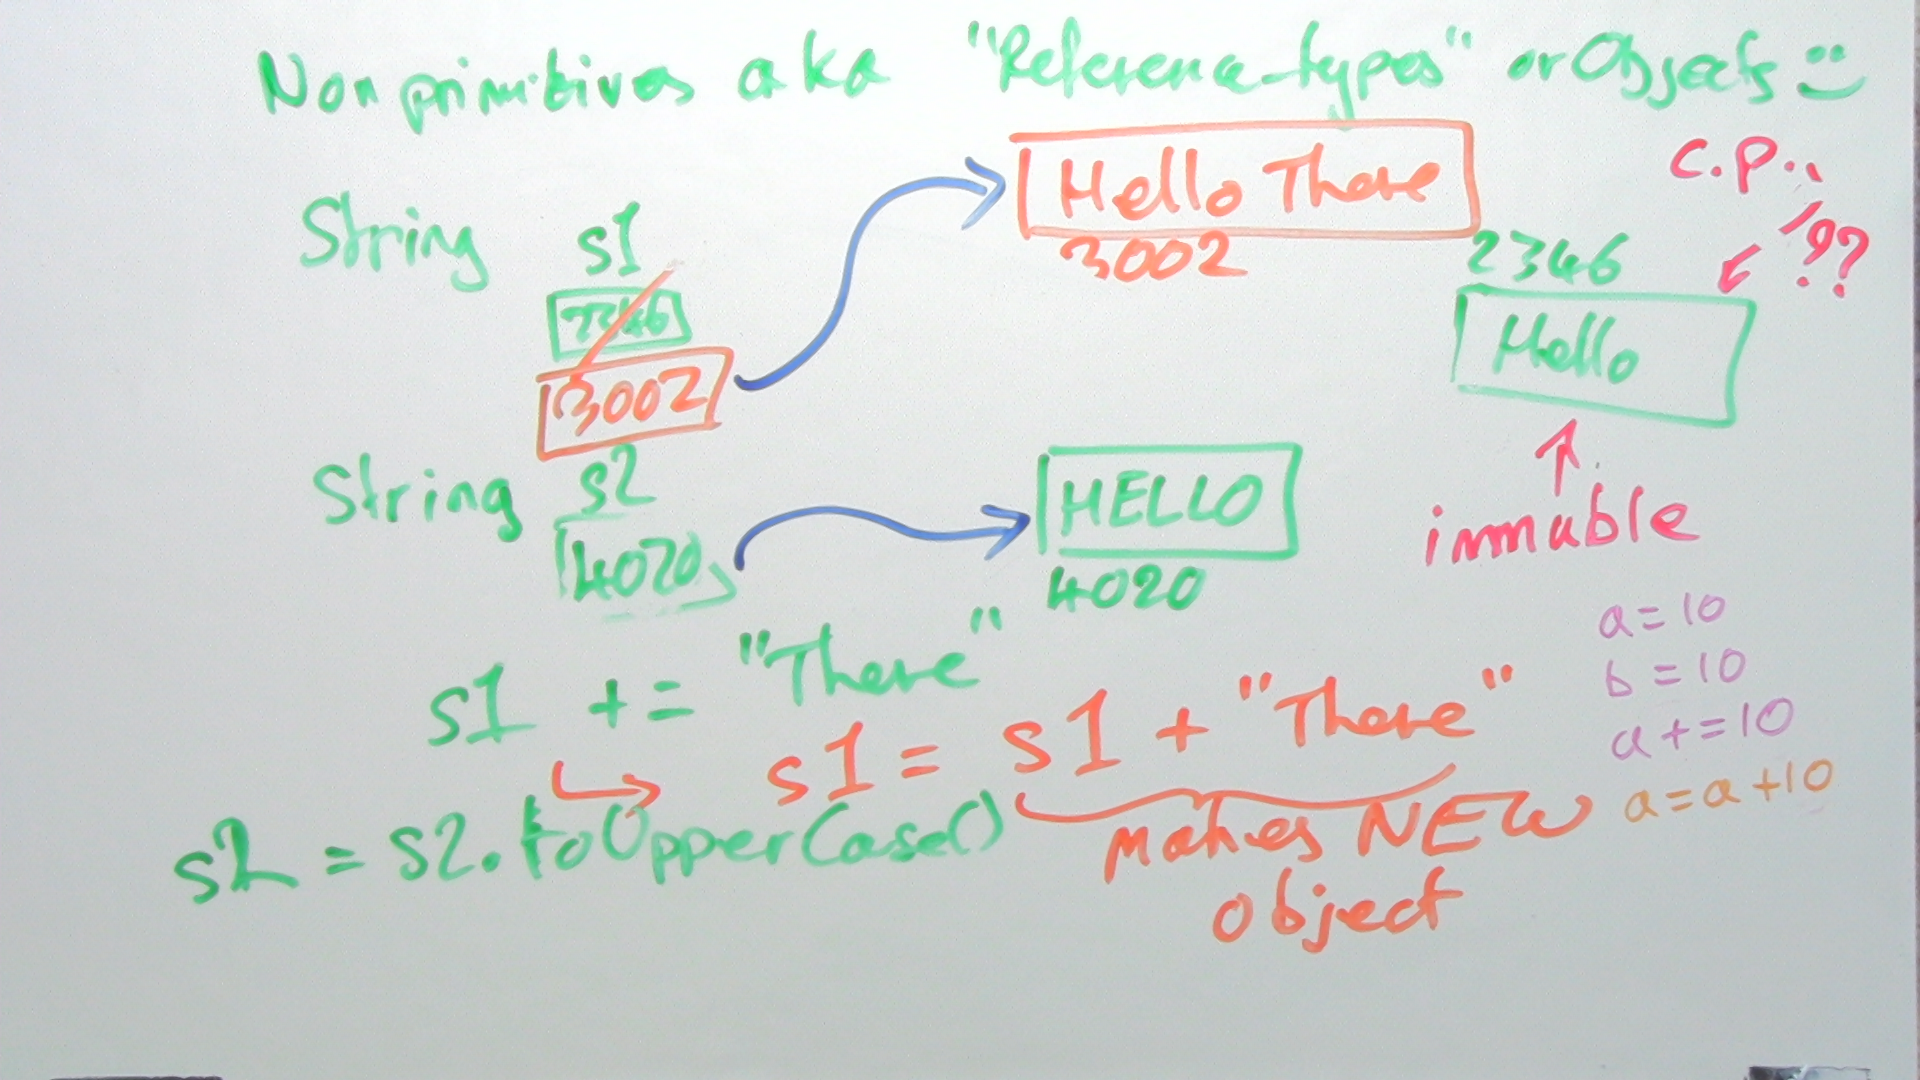 Nonprimitives aka "Reference-types" or Objects
c.p..
??
Hello There
3002
String s1
2346
3002
2346
Hello
immuble
String s2
4020
HELLO
4020
s1 += "There"
s1 = s1 + "There"
makes NEW
object
s2 = s2.toUpperCase()
a=10
b=10
a+=10
a=a+10